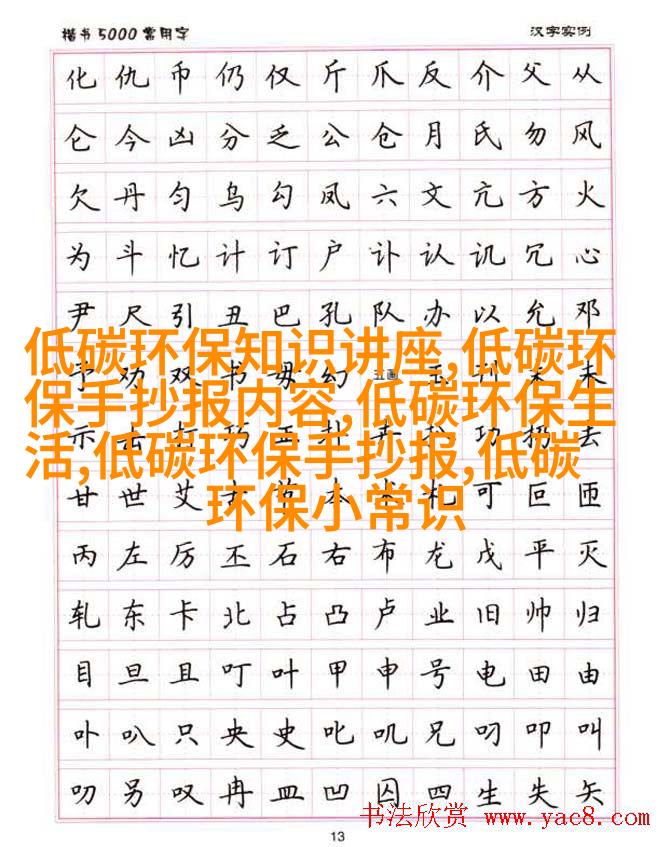 楷书5000常用字 汉字实例
化 仇 币 仍 仅 斤 爪 反 介 父 从
仑 今 凶 分 乏 公 仓 月 氏 勿 风
欠 丹 匀 乌 勾 凤 六 文 亢 方 火
为 斗 忆 计 订 户 讣 认 讥 冗 心
尹 尺 引 丑 巴 孔 队 办 以 允 邓
低碳环保知识讲座,低碳环
保手抄报内容,低碳环保生
活,低碳环保手抄报,低碳
环保小常识
甘 世 艾 本 札 可 叵 匝
丙 左 厉 丕 石 右 布 龙 戊 平 灭
轧 东 卡 北 占 凸 卢 业 旧 帅 归
目 旦 且 叮 叶 甲 申 号 电 田 由
卟 叭 只 央 史 叱 叽 兄 叼 叩 叫
叨 另 叹 冉 皿 凹 囚 四 生 失 矢
书法欣赏 www.yac8.com
13